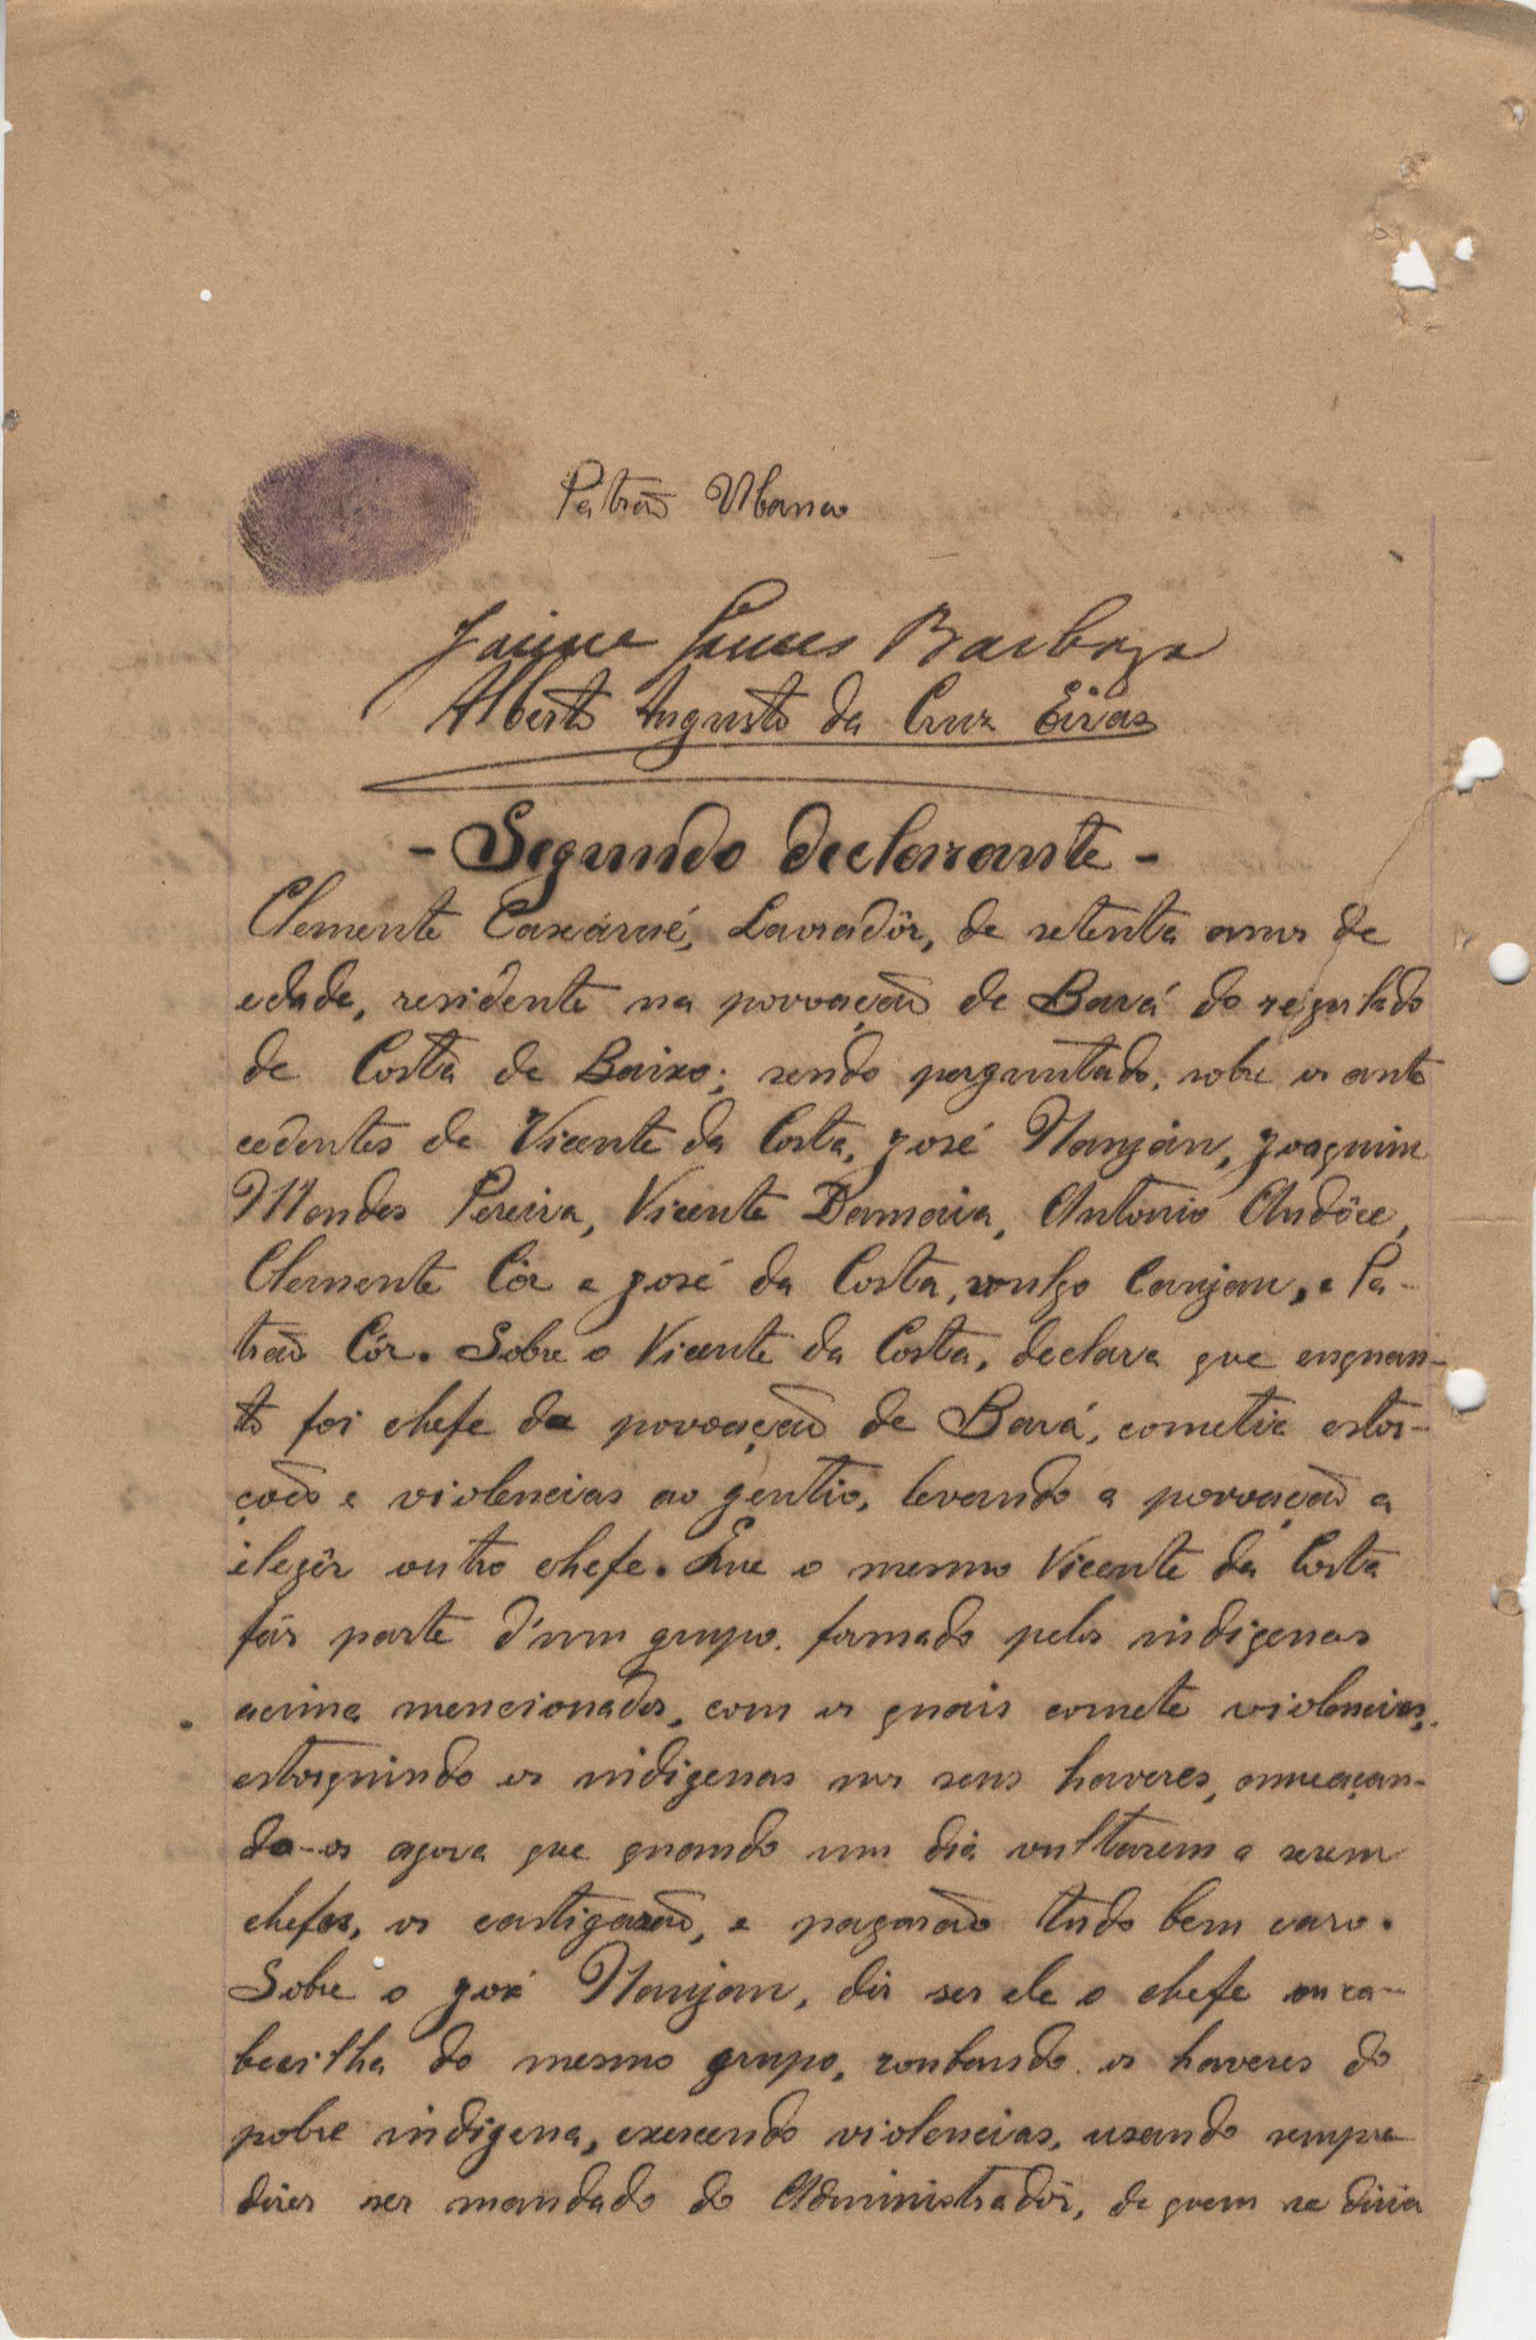 Patrão Ubana
Jaime Gomes Barboza
Alberto Augusto da Cruz Eiras
- Segundo declarante -
Clemente Caxárué, Lavradôr, de setenta anos de
edade, residente na povoação de Bará do regulado
de Costa de Baixo; sendo perguntado, sobre os ante
cedentes de Vicente da Costa, José Nanján, Joaquim
Mendes Pereira, Vicente Damaia, Antonio Andôce,
Clemente Côr e José da Costa, vulgo Canjan, e Pa-
trão Côr. Sobre o Vicente da Costa, declara que enquan-
to foi chefe da povoação de Bará, cometia estor-
ções e violencias ao gentio, levando a povoação a
elegêr outro chefe. Que o mesmo Vicente da Costa
fás parte d'um grupo formado pelos indigenas
acima mencionados, com os quais comete violencias,
estorquindo os indigenas nos seus haveres, ameaçan-
do-os agora que quando um dia voltarem a serem
chefes, os castigarão, e pagarão tudo bem caro.
Sobre o José Nanjan, dis ser ele o chefe ou ca-
becilha do mesmo grupo, roubando os haveres do
pobre indigena, exercendo violencias, usando sempre
dizer ser mandado do Administradôr, de quem se dizia